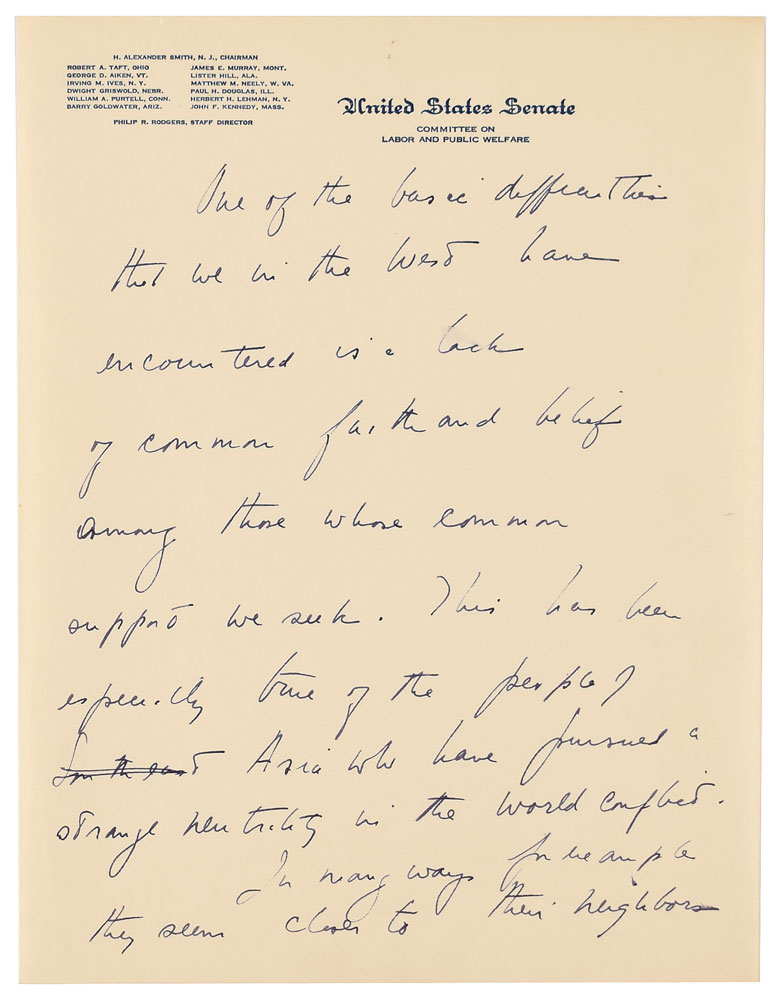 H. ALEXANDER SMITH, N. J., CHAIRMAN
ROBERT A. TAFT, OHIO JAMES E. MURRAY, MONT.
GEORGE D. AIKEN, VT. LISTER HILL, ALA.
IRVING M. IVES, N. Y. MATTHEW M. NEELY, W. VA.
DWIGHT GRISWOLD, NEBR. PAUL H. DOUGLAS, ILL.
WILLIAM A. PURTELL, CONN. HERBERT H. LEHMAN, N. Y.
BARRY GOLDWATER, ARIZ. JOHN F. KENNEDY, MASS.
PHILIP R. RODGERS, STAFF DIRECTOR
United States Senate
COMMITTEE ON
LABOR AND PUBLIC WELFARE
One of the basic
that we in the West have
encountered is a lack
of common faith and belief
among those whose common
support we seek. This has been
especially true of the people of
Asia who have pursued a
strange neutrality in the world conflict.
In many ways for example
they seem closer to their neighbors